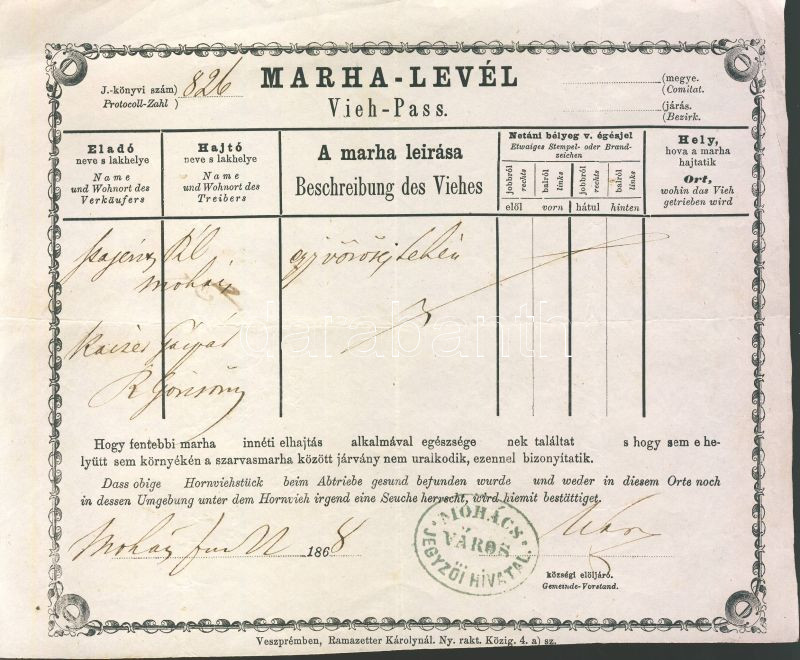 MARHA-LEVÉL
Vieh-Pass.
J.-könyvi szám) 826
Protocoll-Zahl )
(megye.
(Comitat.
(járás.
(Bezirk.
Eladó
neve s lakhelye
Name
und Wohnort des
Verkäufers
Hajtó
neve s lakhelye
Name
und Wohnort des
Treibers
A marha leirása
Beschreibung des Viehes
Netáni bélyeg v. égésjel
Etwaiges Stempel- oder Brand-
zeichen
jobbról
rechts
balról
links
jobbról
rechts
balról
links
elől vorn hátul hinten
Hely,
hova a marha
hajtatik
Ort,
wohin das Vieh
getrieben wird
Pál
egy vörösej tehén
mohács
Gáspár
garabanth
Hogy fentebbi marha innéti elhajtás alkalmával egészsége nek találtat s hogy sem e he-
lyütt sem környékén a szarvasmarha között járvány nem uralkodik, ezennel bizonyítatik.
Dass obige Hornviehstück beim Abtriebe gesund befunden wurde und weder in diesem Orte noch
in dessen Umgebung unter dem Hornvieh irgend eine Seuche herrscht, wird hiemit bestättiget.
Mohács 22 1868
MÓHÁCS
VÁROS
JEGYZŐI HIVATAL.
községi előljáró.
Gemeinde-Vorstand.
Veszprémben, Ramazetter Károlynál. Ny. rakt. Közig. 4. a) sz.